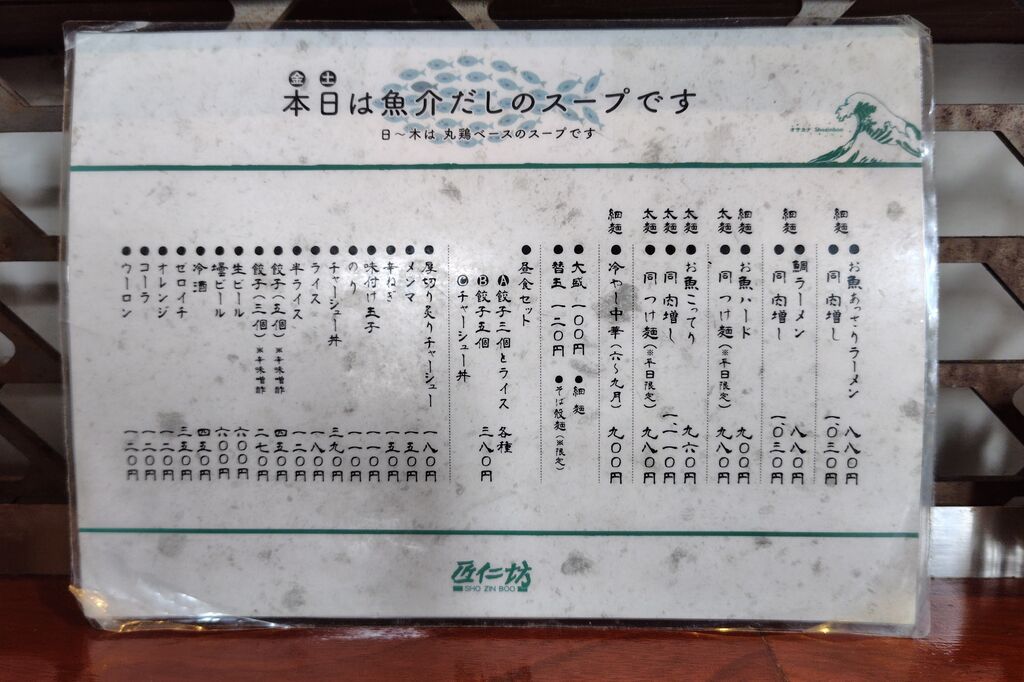 金 土
本日は魚介だしのスープです
日～木は 丸鶏ベースのスープです
オサカナ Shozinboo
細麺 ● お魚あっさりラーメン 八八〇円
● 同 肉増し 一、〇三〇円
細麺 ● 鯛ラーメン 八八〇円
● 同 肉増し 一、〇三〇円
細麺 ● お魚ハード 九〇〇円
太麺 ● 同 つけ麺(※平日限定) 九八〇円
太麺 ● お魚こってり 九六〇円
太麺 ● 同 肉増し 一、一一〇円
太麺 ● 同 つけ麺(※平日限定) 九八〇円
細麺 ● 冷やし中華(六～九月) 九〇〇円
● 大盛 一〇〇円 ● 細麺
● 替玉 一二〇円 ● そば殻麺(※限定)
● 昼食セット
Ⓐ餃子三個とライス 各種
Ⓑ餃子五個 三八〇円
Ⓒチャーシュー丼
● 厚切り炙りチャーシュー 一八〇円
● メンマ 一五〇円
● 辛ねぎ 一五〇円
● 味付け玉子 一一〇円
● のり 一一〇円
● チャーシュー丼 三九〇円
● ライス 一八〇円
● 半ライス 一二〇円
● 餃子(五個)※辛味噌酢 四五〇円
● 餃子(三個)※辛味噌酢 二七〇円
● 生ビール 六〇〇円
● 壜ビール 六〇〇円
● 冷酒 四五〇円
● ゼロイチ 三五〇円
● オレンジ 一二〇円
● コーラ 一二〇円
● ウーロン 一二〇円
匠仁坊
SHO ZIN BOO